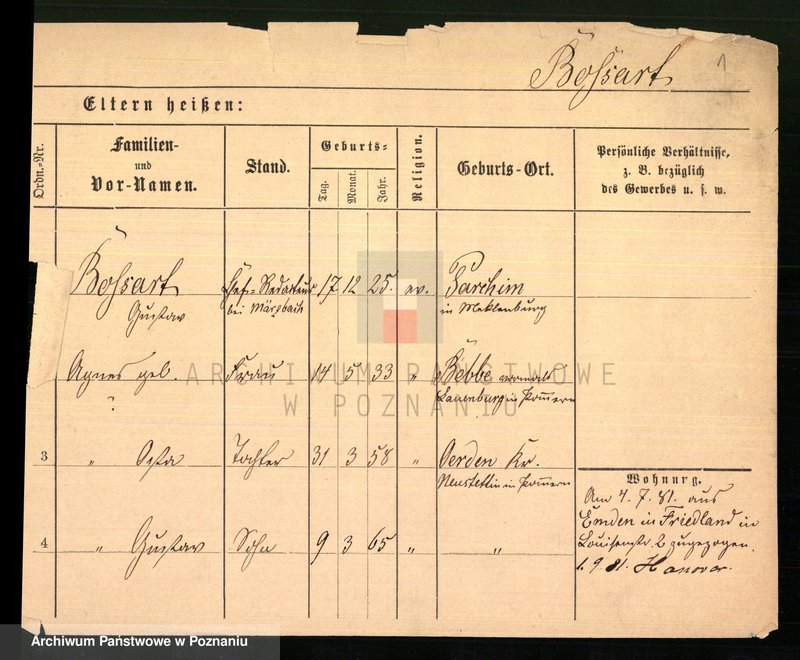 Bossart
1
Eltern heißen:
Ordn.-Nr.
Familien-
und
Vor-Namen.
Stand.
Geburts-
Tag. Monat. Jahr.
Religion.
Geburts-Ort.
Persönliche Verhältnisse,
z. B. bezüglich
des Gewerbes u. s. w.
Bossart Chef-Redacteur 17 12 25. ev. Parchim
Gustav bei Märzbach in Meklenburg
Agnes geb. Frau 14 5 33 " Bebbe vormals
? Lauenburg in Pomern
3 " Asta Tochter 31 3 58 " Oerden Kr.
Neustettin in Pomern
4 " Gustav Sohn 9 3 65 " "
Wohnung.
Am 4. 7. 81. aus
Emden in Friedland in
Louisenstr 2 zugezogen.
1. 9. 81. Hanover.
ARCHIWUM PAŃSTWOWE
W POZNANIU
Archiwum Państwowe w Poznaniu